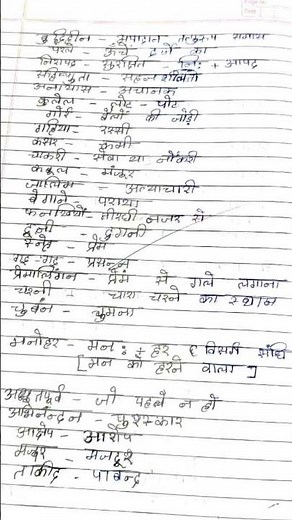 बुद्धिहीन - अपादान तत्पुरुष समास
परले - ऊँचे दर्जे का
निरापद - सुरक्षित - निः + आपद
सहिष्णुता - सहनशीलता
अनायास - अचानक
कुलेल - लोट - पोट
गोईं - बैलों की जोड़ी
गराँव - रस्सी
कसर - कमी
चाकरी - सेवा या नौकरी
कबूल - मंजूर
जालिम = अत्याचारी
बेगाने - पराया
कनखियों - तिरछी नजर से
दुनी दुगनी
स्नेह - प्रेम
गद्-गद् - प्रसन्न
प्रेमालिंगन - प्रेम से गले लगाना
चरनी - चारा चरने का स्थान
चुबंन - चुमना
मनोहर - मन: + हर ( विसर्ग संधि
[ मन को हरने वाला ]
अभूतपूर्व - जो पहले न हो
अभिनन्दन - पुरस्कार
आक्षेप - आरोप
मजूर - मजदूर
ताकीद - पाबन्द